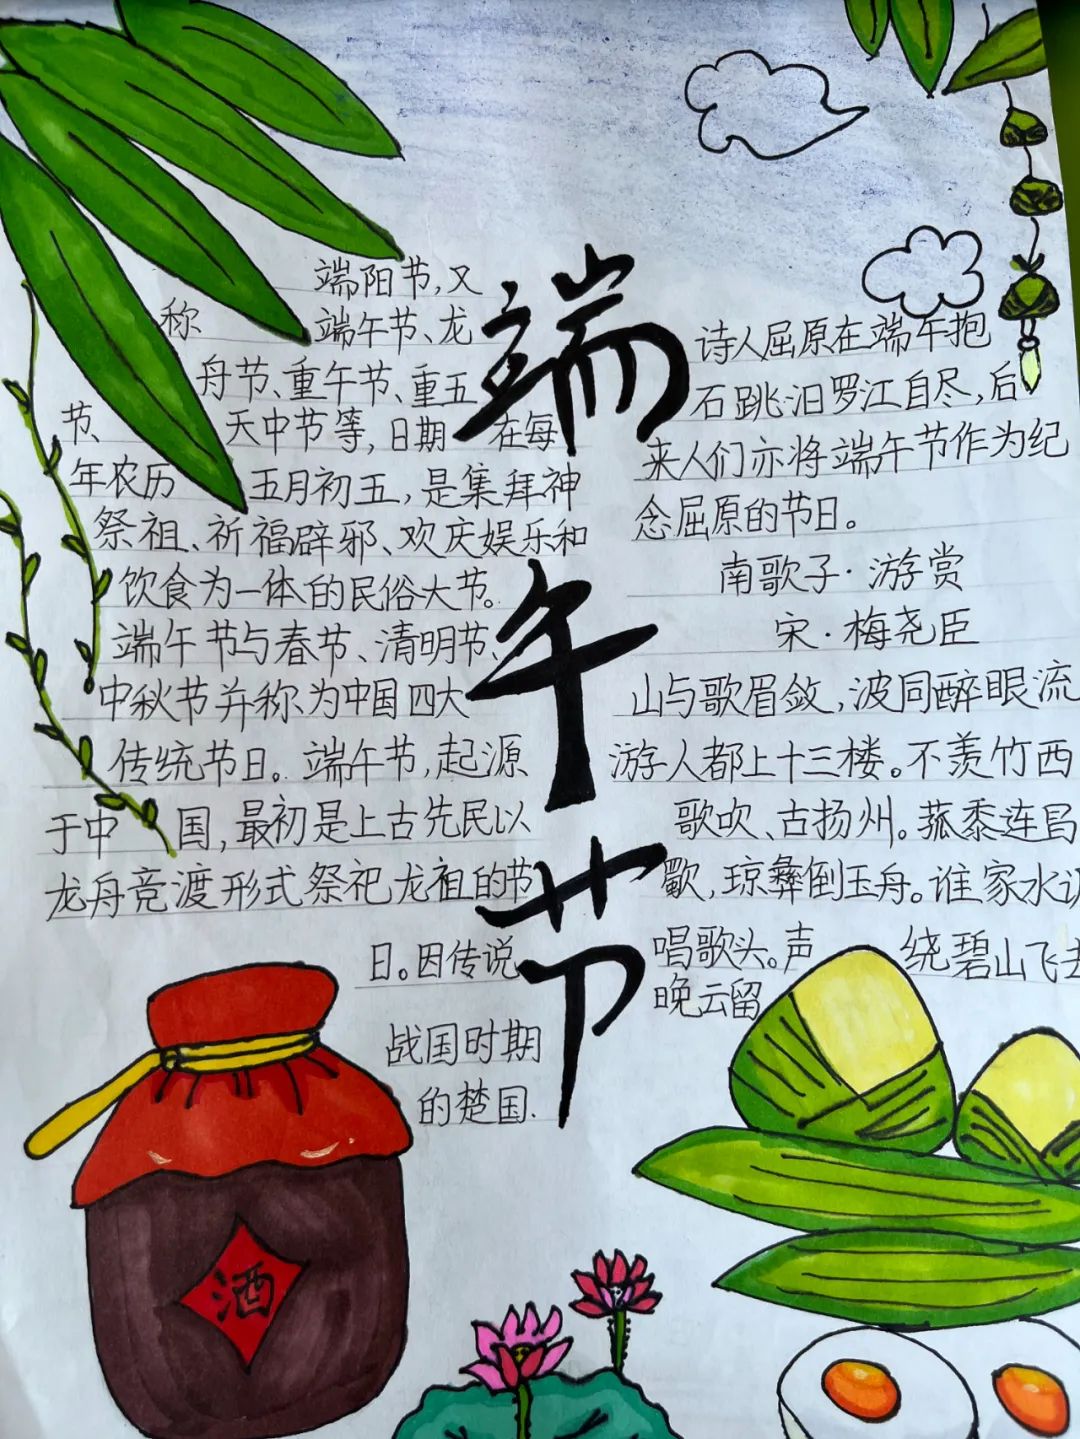 端午节
端阳节,又
称 端午节、龙
舟节、重午节、重五
节、 天中节等,日期 在每
年农历 五月初五,是集拜神
祭祖、祈福辟邪、欢庆娱乐和
饮食为一体的民俗大节。
端午节与春节、清明节、
中秋节并称为中国四大
传统节日。端午节,起源
于中 国,最初是上古先民以
龙舟竞渡形式祭祀龙祖的节
日。因传说
战国时期
的楚国.
诗人屈原在端午抱
石跳汨罗江自尽,后
来人们亦将端午节作为纪
念屈原的节日。
南歌子·游赏
宋·梅尧臣
山与歌眉敛,波同醉眼流
游人都上十三楼。不羡竹西
歌吹、古扬州。菰黍连昌
歜,琼彝倒玉舟。谁家水
唱歌头。声 绕碧山飞去
晚云留
酒